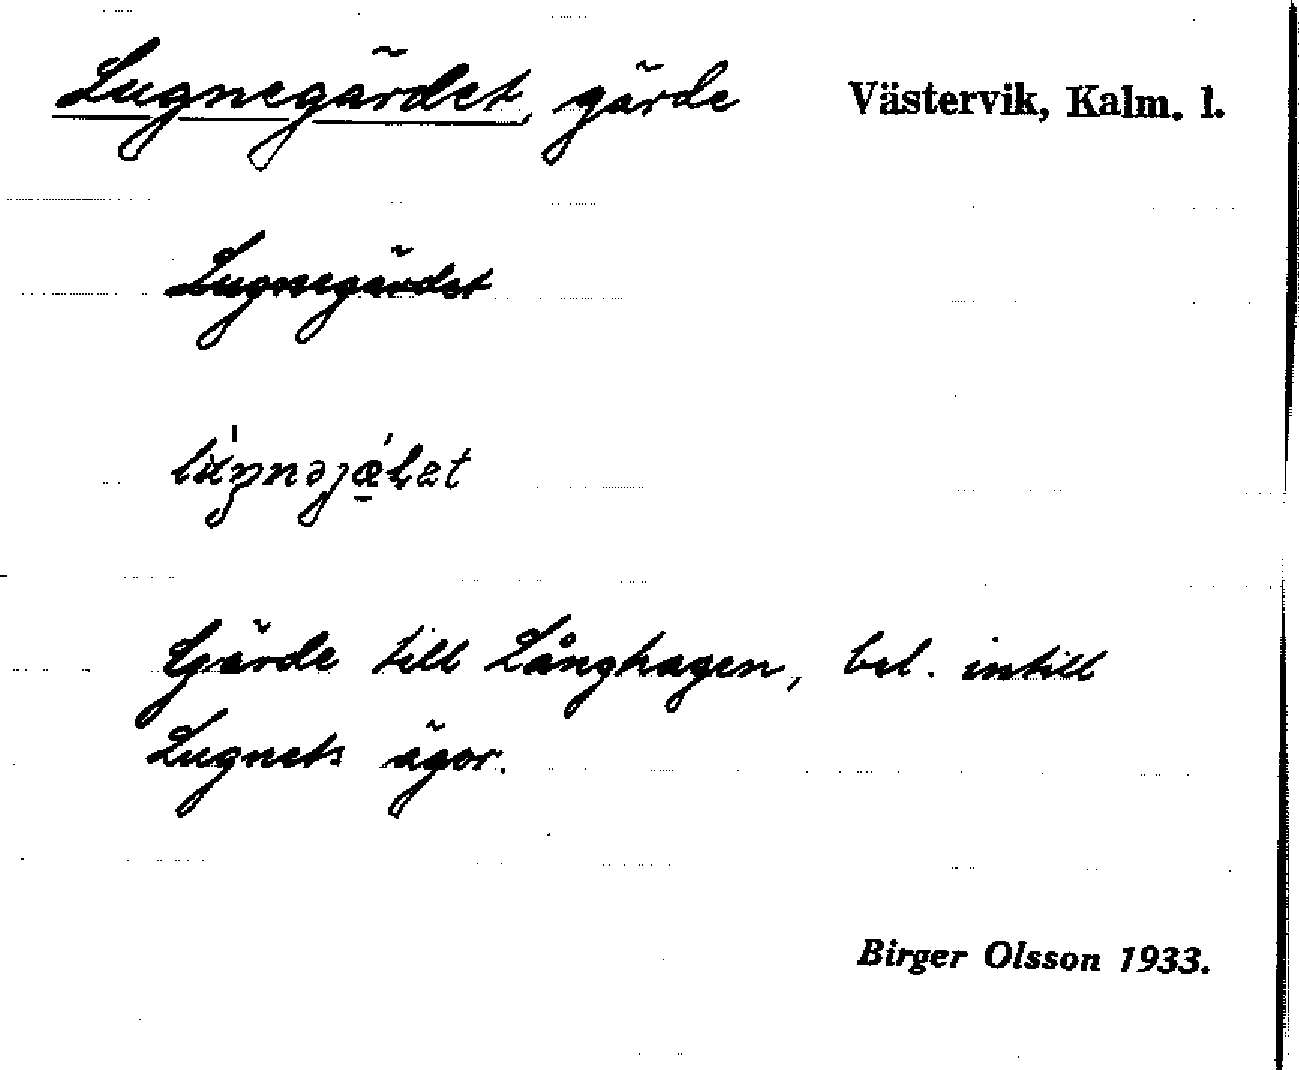 Lugnegärdet, gärde Västervik, Kalm. l.
Lugnegärdet
Gärde till Långhagen, bel. intill
Lugnets ägor.
Birger Olsson 1933.